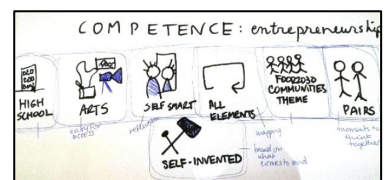 COMPETENCE: entrepreneurship
HIGH
SCHOOL
ARTS
SELF SMART
ALL
ELEMENTS
FOOD2030
COMMUNITIES
THEME
PAIRS
entry for
access
reflection
mapping
moments to
think
together
SELF-INVENTED
based on
what
comes to mind